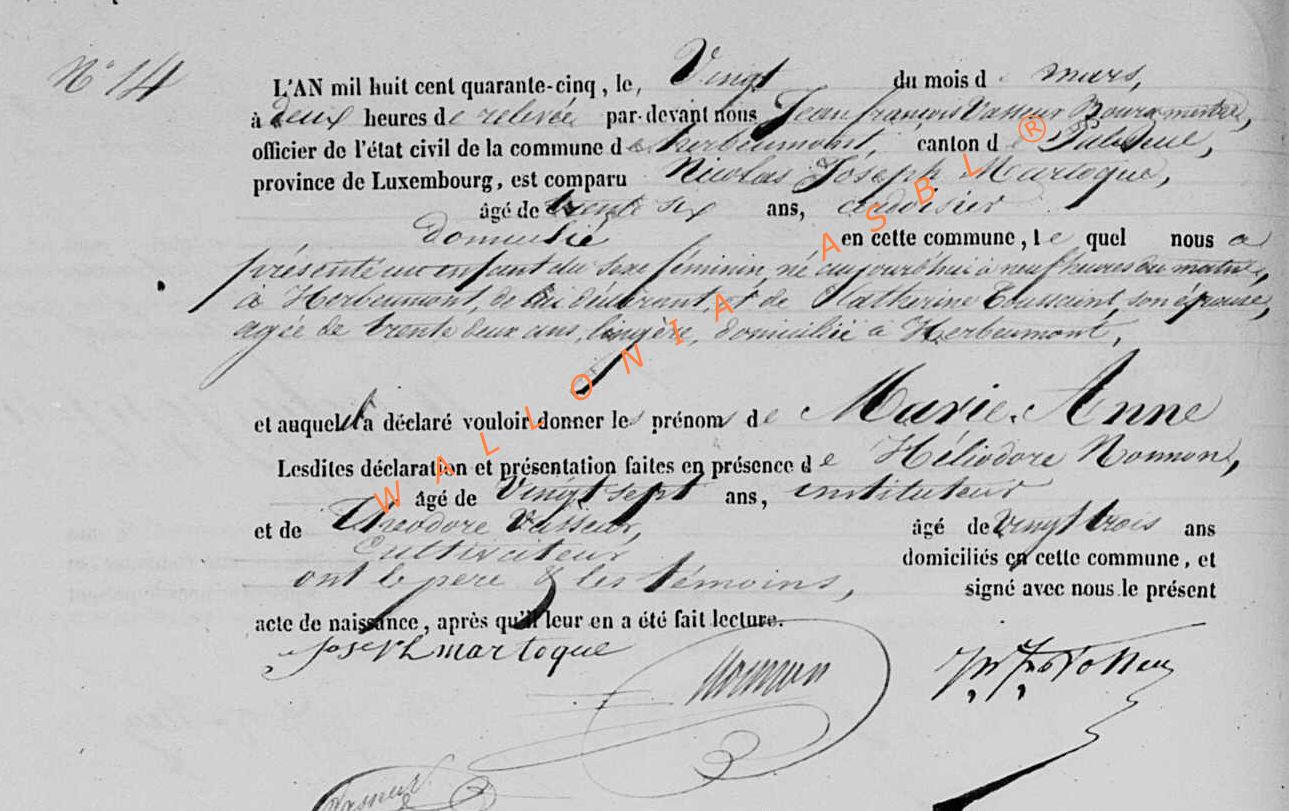 N° 14
L'AN mil huit cent quarante-cinq, le, Vingt du mois de mars,
à deux heures de relevée par-devant nous Jean françois Vasseur Bourgmestre,
officier de l'état civil de la commune de herbeumont, canton de Paliseul,
province de Luxembourg, est comparu Nicolas Joseph Martoque,
âgé de trente six ans, ardoisier
domicilié en cette commune, le quel nous a
présenté un enfant du sexe féminin, né aujourd'hui à neuf heures du matin,
à Herbeumont, de lui déclarant, et de Catherine Toussaint, son épouse,
agée de trente deux ans, lingère, domiciliée à Herbeumont,
et auquel il a déclaré vouloir donner les prénoms de Marie Anne
Lesdites déclaration et présentation faites en présence de Héliodore Nonnon,
âgé de Vingt sept ans, instituteur
et de Théodore Vasseur, âgé de vingt trois ans
Cultivateur domiciliés en cette commune, et
ont le père & les témoins, signé avec nous le présent
acte de naissance, après qu'il leur en a été fait lecture.
Joseph martoque
WALLONIA ASBL ®